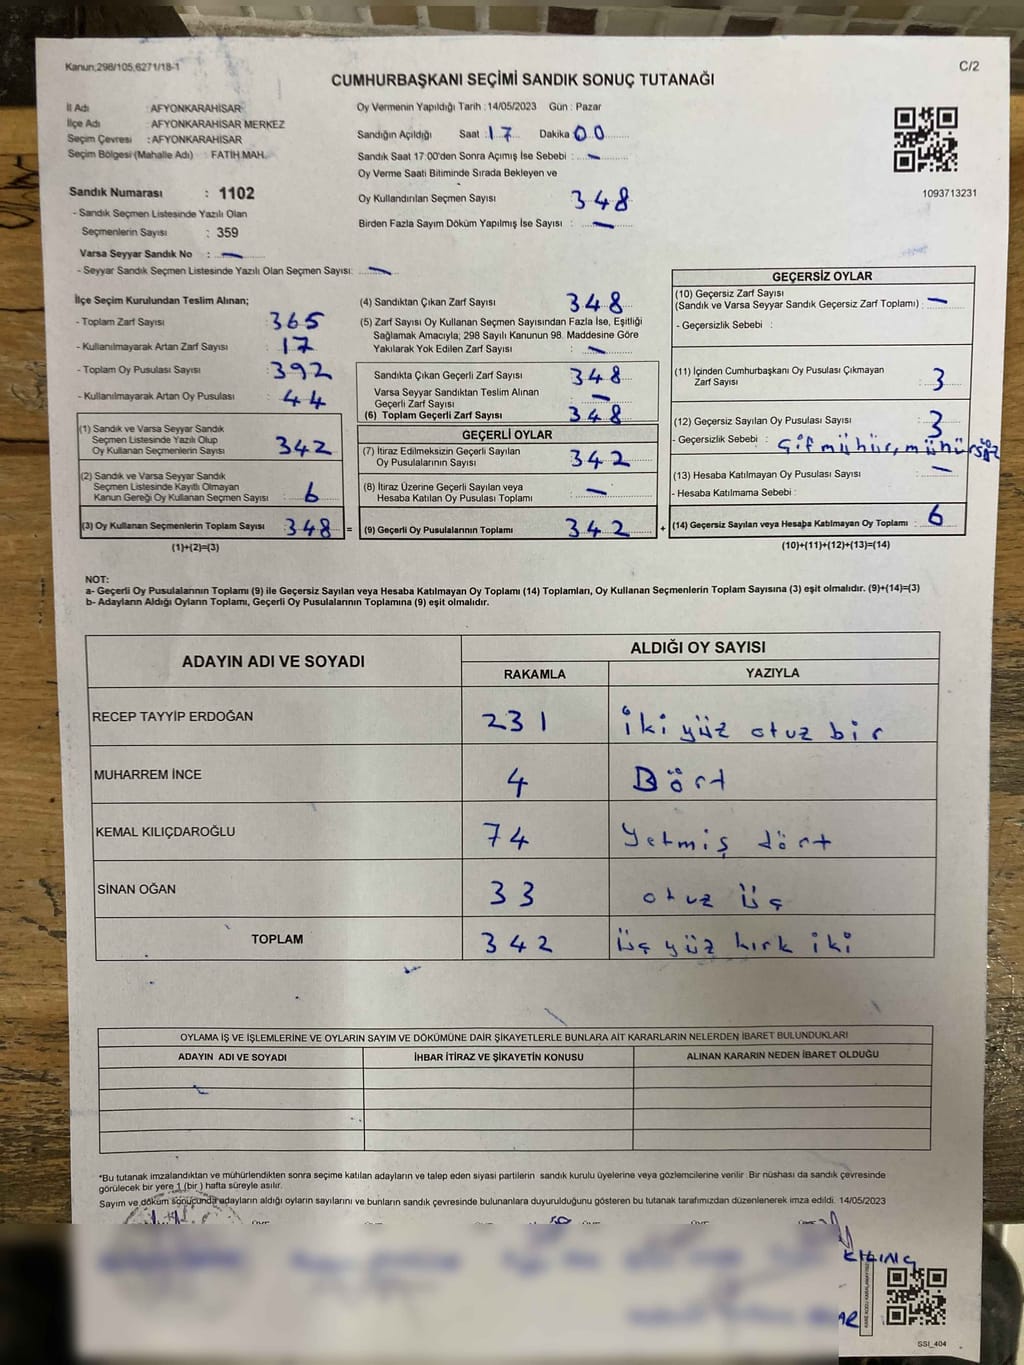 Kanun;298/105,6271/18-1
C/2
CUMHURBAŞKANI SEÇİMİ SANDIK SONUÇ TUTANAĞI
İl Adı : AFYONKARAHİSAR
İlçe Adı : AFYONKARAHİSAR MERKEZ
Seçim Çevresi : AFYONKARAHİSAR
Seçim Bölgesi (Mahalle Adı) : FATİH MAH.
Oy Vermenin Yapıldığı Tarih : 14/05/2023 Gün : Pazar
Sandığın Açıldığı Saat : 17 Dakika 00
Sandık Saat 17:00'den Sonra Açımış İse Sebebi : –
Oy Verme Saati Bitiminde Sırada Bekleyen ve
Oy Kullandırılan Seçmen Sayısı 348
Birden Fazla Sayım Döküm Yapılmış İse Sayısı : –
1093713231
Sandık Numarası : 1102
- Sandık Seçmen Listesinde Yazılı Olan
Seçmenlerin Sayısı : 359
Varsa Seyyar Sandık No : –
- Seyyar Sandık Seçmen Listesinde Yazılı Olan Seçmen Sayısı: –
İlçe Seçim Kurulundan Teslim Alınan;
- Toplam Zarf Sayısı 365
- Kullanılmayarak Artan Zarf Sayısı 17
- Toplam Oy Pusulası Sayısı 392
- Kullanılmayarak Artan Oy Pusulası 44
(1) Sandık ve Varsa Seyyar Sandık
Seçmen Listesinde Yazılı Olup
Oy Kullanan Seçmenlerin Sayısı 342
(2) Sandık ve Varsa Seyyar Sandık
Seçmen Listesinde Kayıtlı Olmayan
Kanun Gereği Oy Kullanan Seçmen Sayısı 6
(3) Oy Kullanan Seçmenlerin Toplam Sayısı 348 =
(1)+(2)=(3)
(4) Sandıktan Çıkan Zarf Sayısı 348
(5) Zarf Sayısı Oy Kullanan Seçmen Sayısından Fazla İse, Eşitliği
Sağlamak Amacıyla; 298 Sayılı Kanunun 98. Maddesine Göre
Yakılarak Yok Edilen Zarf Sayısı : –
Sandıkta Çıkan Geçerli Zarf Sayısı 348
Varsa Seyyar Sandıktan Teslim Alınan
Geçerli Zarf Sayısı –
(6) Toplam Geçerli Zarf Sayısı 348
GEÇERLİ OYLAR
(7) İtiraz Edilmeksizin Geçerli Sayılan
Oy Pusulalarının Sayısı 342
(8) İtiraz Üzerine Geçerli Sayılan veya
Hesaba Katılan Oy Pusulası Toplamı –
(9) Geçerli Oy Pusulalarının Toplamı 342 +
GEÇERSİZ OYLAR
(10) Geçersiz Zarf Sayısı
(Sandık ve Varsa Seyyar Sandık Geçersiz Zarf Toplamı) : –
- Geçersizlik Sebebi :
(11) İçinden Cumhurbaşkanı Oy Pusulası Çıkmayan
Zarf Sayısı 3
(12) Geçersiz Sayılan Oy Pusulası Sayısı 3
- Geçersizlik Sebebi : Çif mühür, mühürsüz
(13) Hesaba Katılmayan Oy Pusulası Sayısı –
- Hesaba Katılmama Sebebi :
(14) Geçersiz Sayılan veya Hesaba Katılmayan Oy Toplamı : 6
(10)+(11)+(12)+(13)=(14)
NOT:
a- Geçerli Oy Pusulalarının Toplamı (9) ile Geçersiz Sayılan veya Hesaba Katılmayan Oy Toplamı (14) Toplamları, Oy Kullanan Seçmenlerin Toplam Sayısına (3) eşit olmalıdır. (9)+(14)=(3)
b- Adayların Aldığı Oyların Toplamı, Geçerli Oy Pusulalarının Toplamına (9) eşit olmalıdır.
ADAYIN ADI VE SOYADI ALDIĞI OY SAYISI
RAKAMLA YAZIYLA
RECEP TAYYİP ERDOĞAN 231 iki yüz otuz bir
MUHARREM İNCE 4 Dört
KEMAL KILIÇDAROĞLU 74 Yetmiş dört
SİNAN OĞAN 33 otuz üç
TOPLAM 342 üç yüz kırk iki
OYLAMA İŞ VE İŞLEMLERİNE VE OYLARIN SAYIM VE DÖKÜMÜNE DAİR ŞİKAYETLERLE BUNLARA AİT KARARLARIN NELERDEN İBARET BULUNDUKLARI
ADAYIN ADI VE SOYADI İHBAR İTİRAZ VE ŞİKAYETİN KONUSU ALINAN KARARIN NEDEN İBARET OLDUĞU
*Bu tutanak imzalandıktan ve mühürlendikten sonra seçime katılan adayların ve talep eden siyasi partilerin sandık kurulu üyelerine veya gözlemcilerine verilir. Bir nüshası da sandık çevresinde
görülecek bir yere 1 (bir ) hafta süreyle asılır.
Sayım ve döküm sonucunda adayların aldığı oyların sayılarını ve bunların sandık çevresinde bulunanlara duyurulduğunu gösteren bu tutanak tarafımızdan düzenlenerek imza edildi. 14/05/2023
KILINÇ
AR
SSI_404